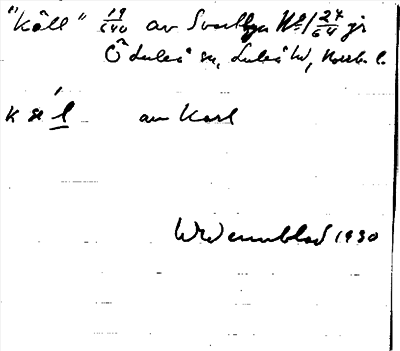 "Kåll" 19/640 av Svartbyn No 1 27/64 jr
Ö Luleå sn, Luleå hd, Norrb. l.
av Karl
W Wennblad 1930